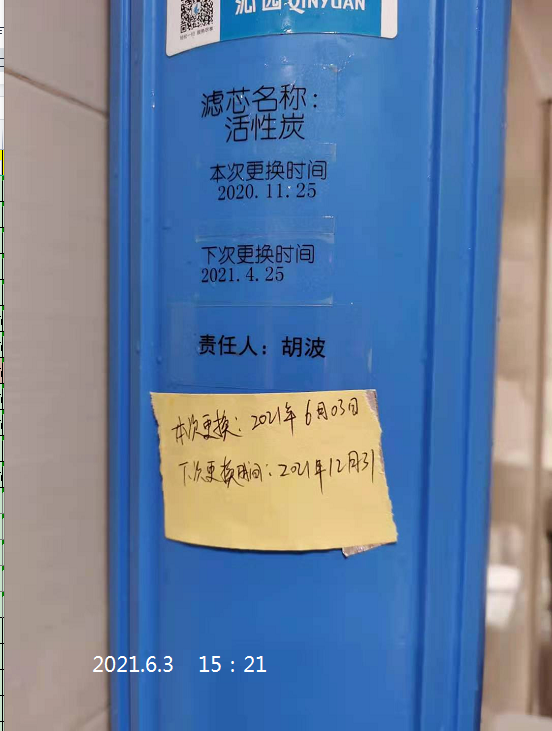 沁园·QINYUAN
滤芯名称：
活性炭
本次更换时间
2020.11.25
下次更换时间
2021.4.25
责任人：胡波
本次更换：2021年6月03日
下次更换时间：2021年12月31
2021.6.3 15：21